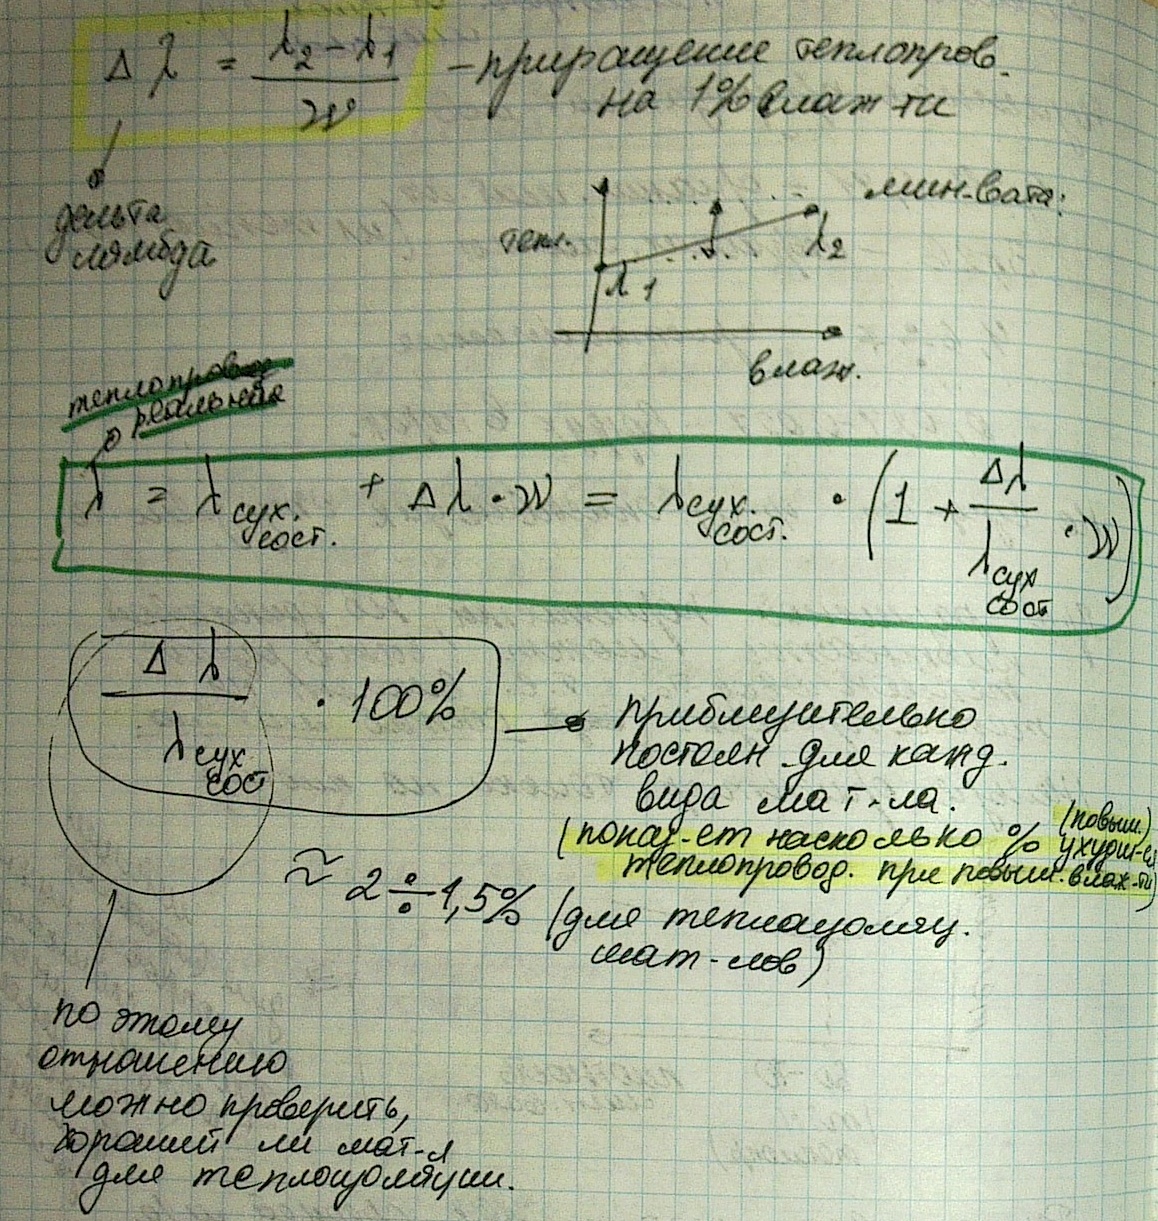 Δλ = (λ2 - λ1) / W - приращение теплопров.
на 1% влаж-ти
дельта
лямбда
мин-вата:
тепл.
λ1
λ2
влаж.
теплопров
реальная
λ = λ сух. сост. + Δλ · W = λ сух. сост. · (1 + Δλ / λ сух сост · W)
Δλ / λ сух сост · 100%
приблизительно
постоян. для кажд.
вида мат-ла.
(показ-ет насколько % ухудш-ся (повыш.)
теплопровод. при повыш. влаж-ти)
≈ 2 ÷ 1,5% (для теплоизоляц.
мат-лов)
по этому
отношению
можно проверить,
хороший ли мат-л
для теплоизоляции.